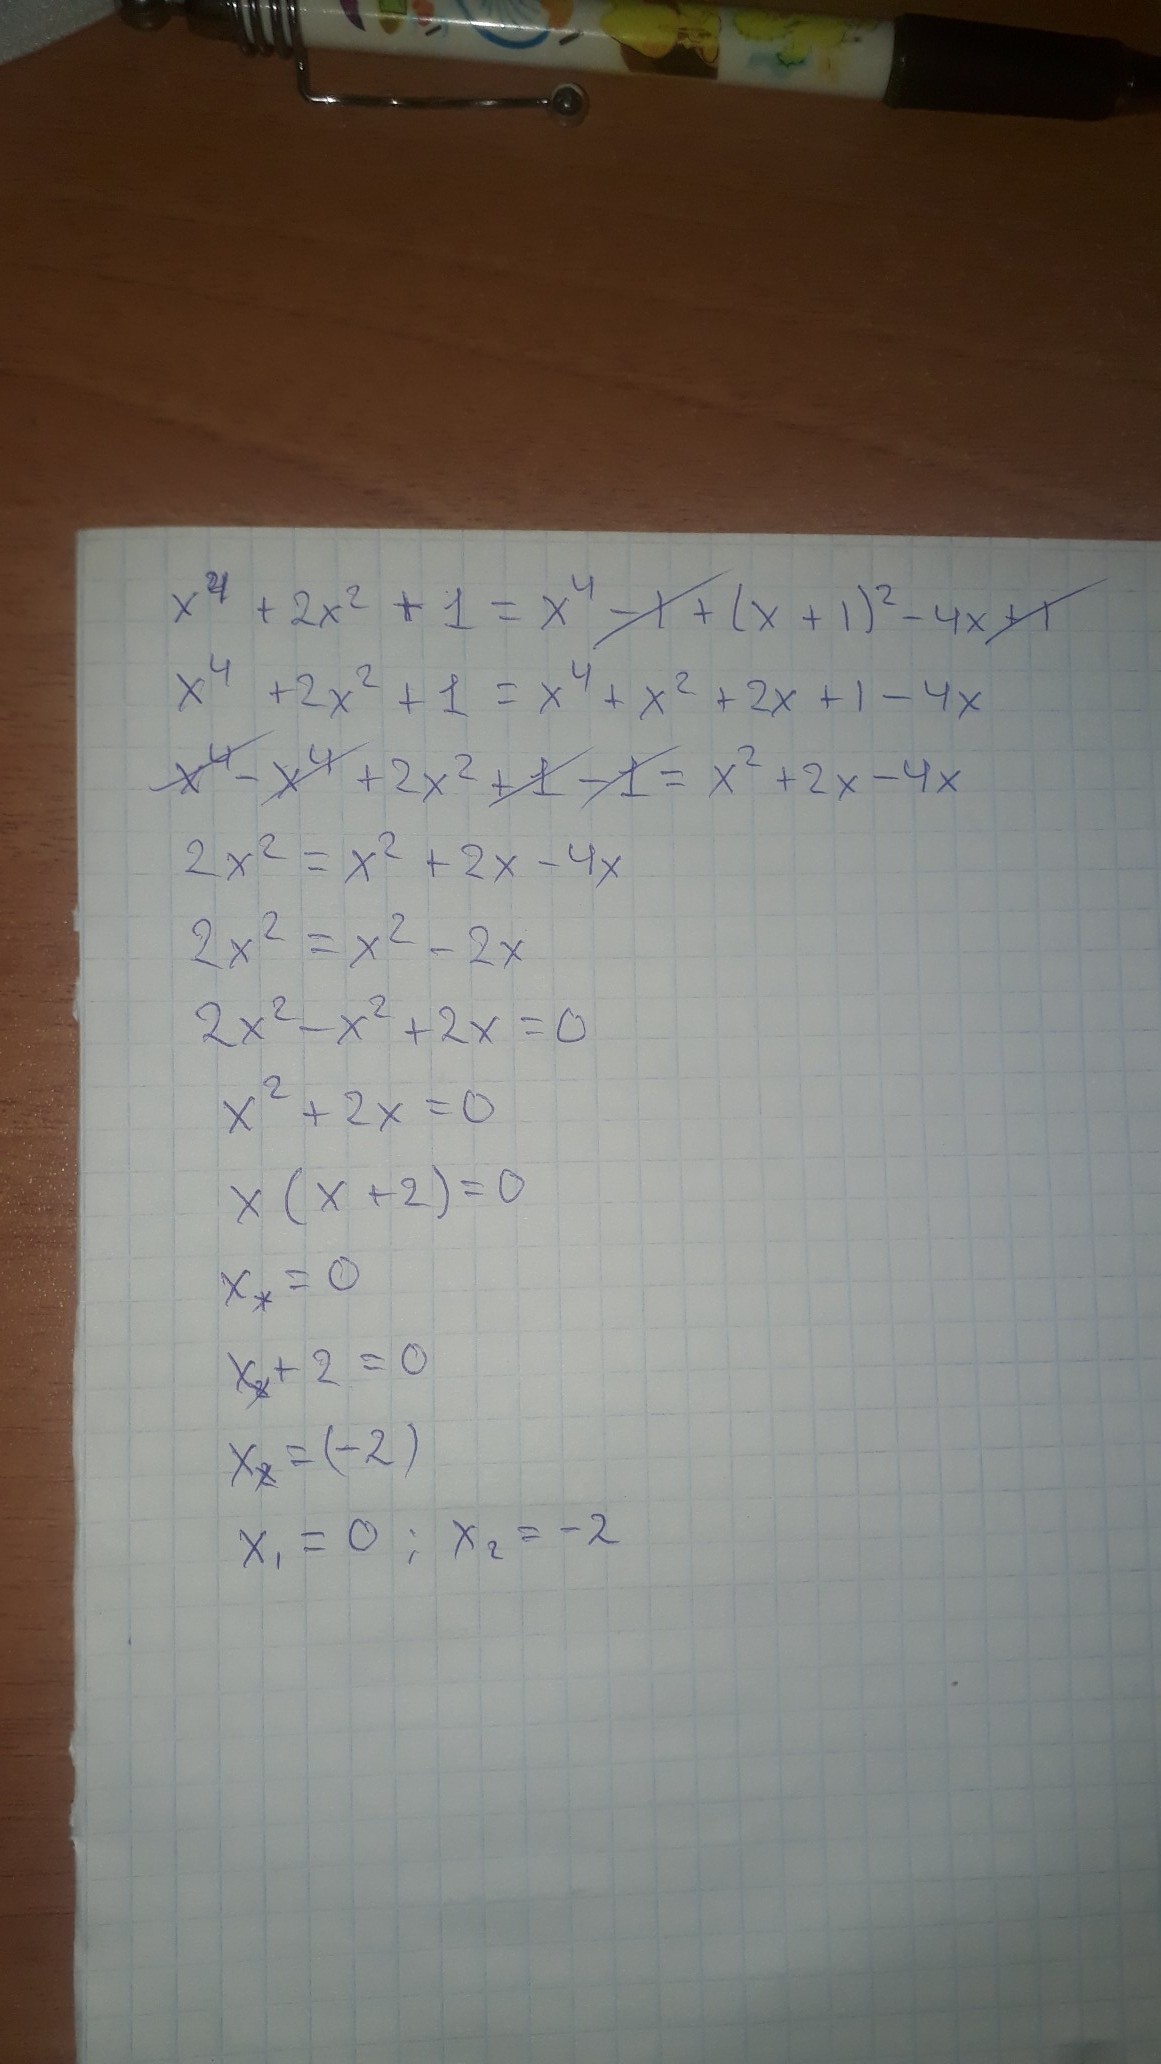 x⁴ + 2x² + 1 = x⁴ - 1 + (x + 1)² - 4x + 1
x⁴ + 2x² + 1 = x⁴ + x² + 2x + 1 - 4x
x⁴ - x⁴ + 2x² + 1 - 1 = x² + 2x - 4x
2x² = x² + 2x - 4x
2x² = x² - 2x
2x² - x² + 2x = 0
x² + 2x = 0
x (x + 2) = 0
x = 0
x + 2 = 0
x = (-2)
x₁ = 0 ; x₂ = -2